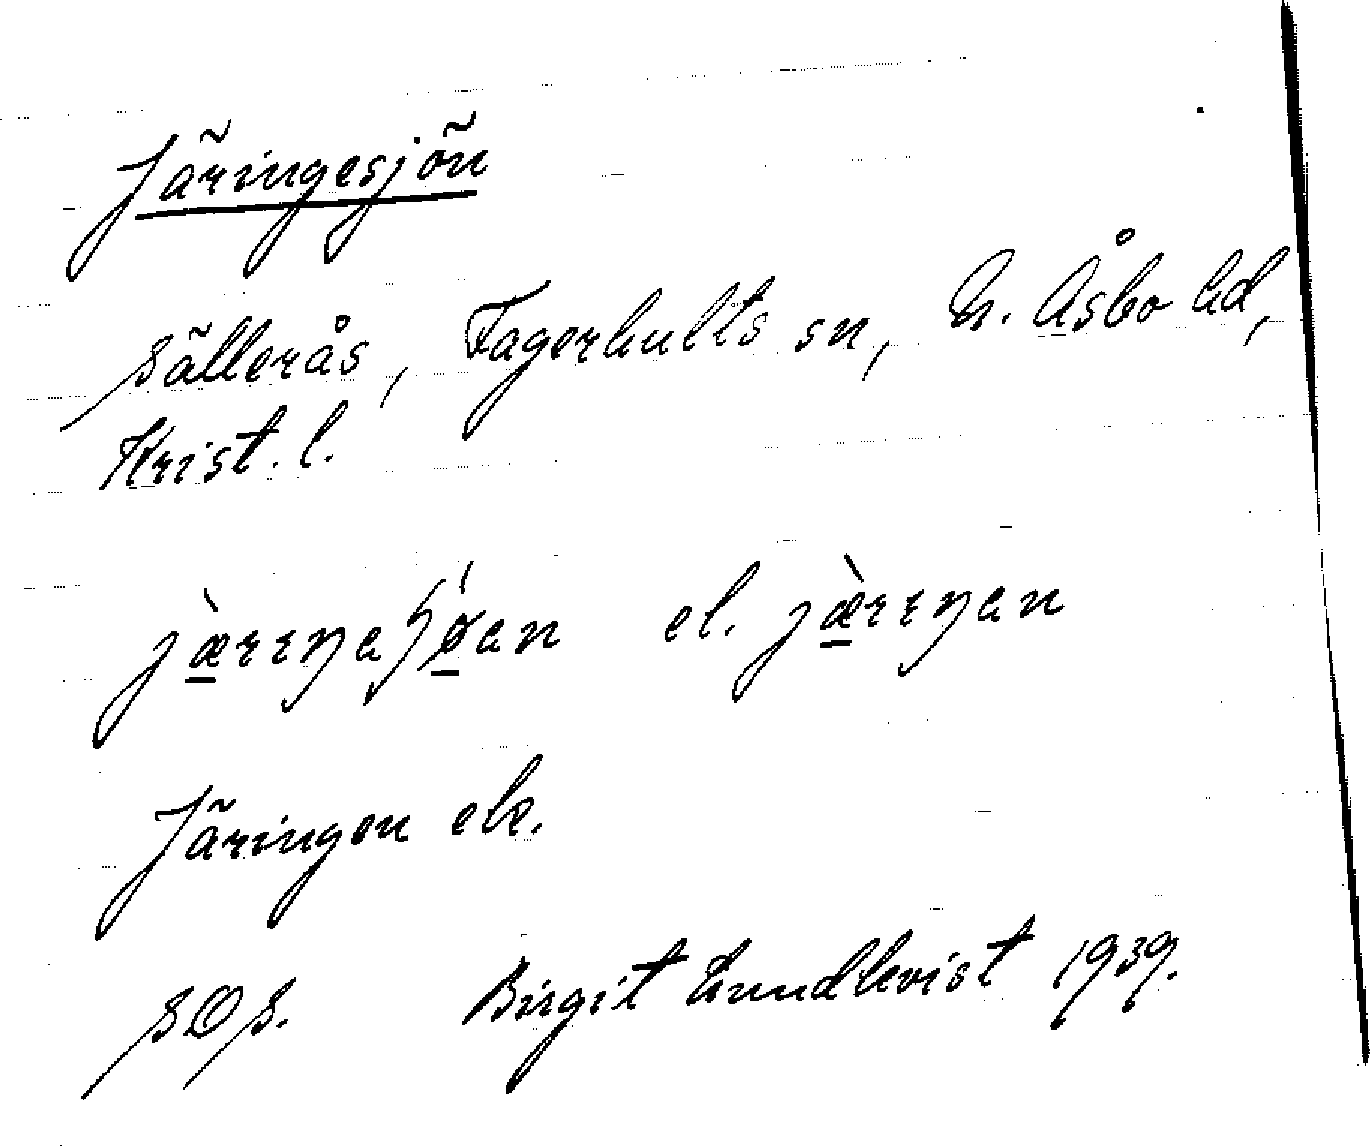 Järingesjön
Sällerås, Fagerhults sn, N. Åsbo hd,
Krist. l.
el.
Järingen ek.
SOS. Birgit Lundkvist 1939.